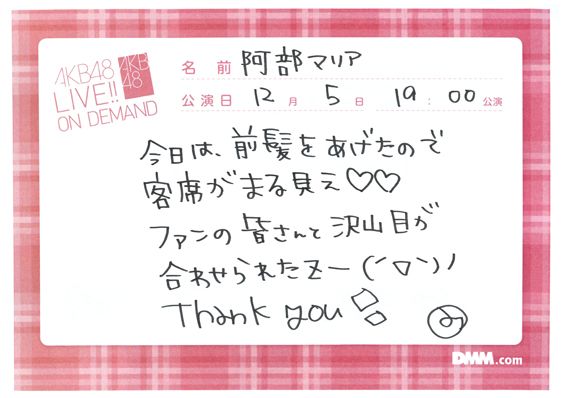 AKB48
LIVE!!
ON DEMAND
AKB
48
名 前 阿部マリア
公演日 12 月 5 日 19 : 00 公演
今日は、前髪をあげたので
客席がまる見え♡♡
ファンの皆さんと沢山目が
合わせられたZー(´▽`)ノ
Thank you
DMM.com